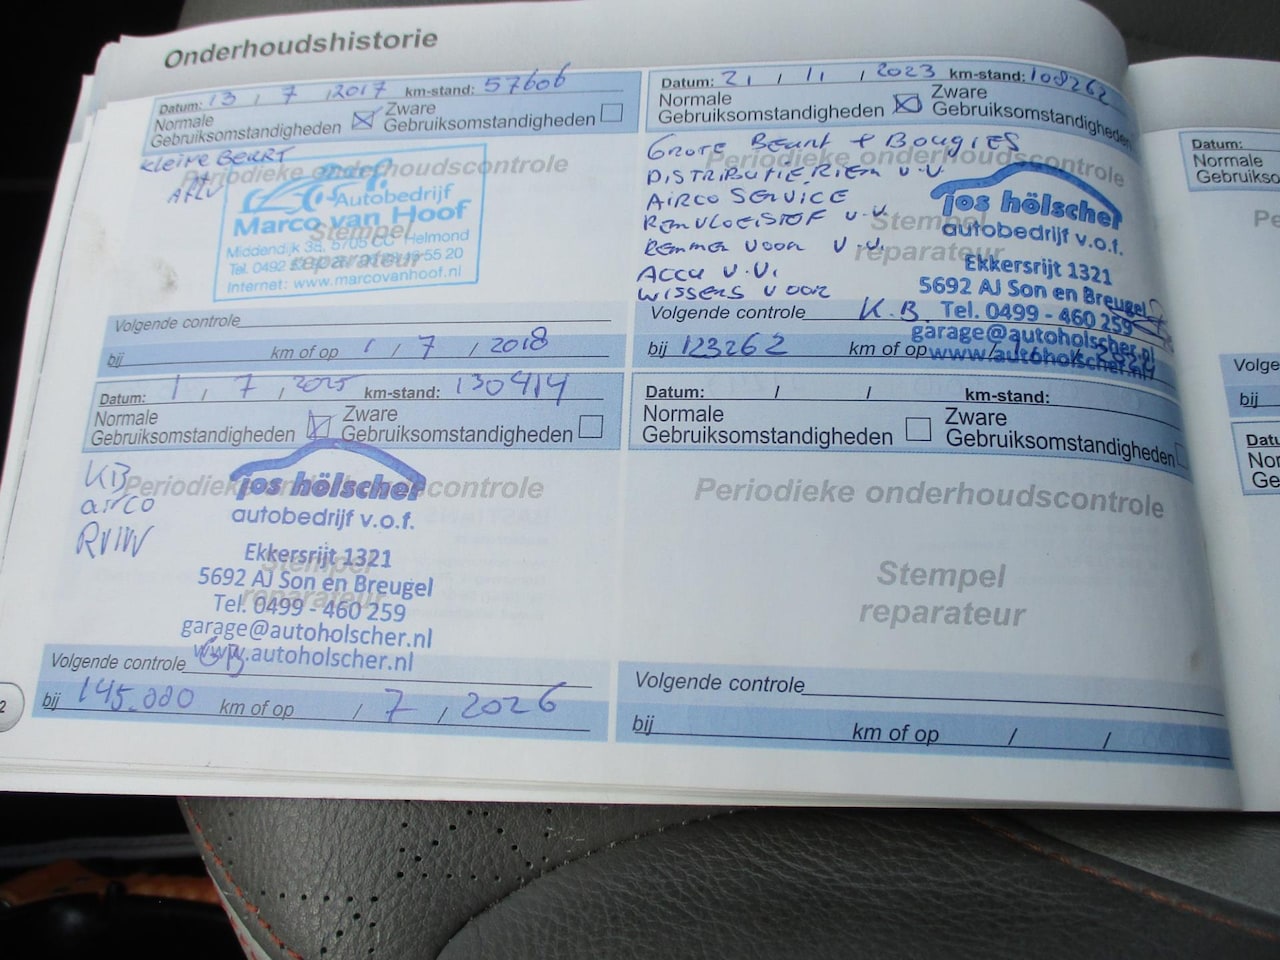 Onderhoudshistorie
Datum: 13 / 7 / 2017 km-stand: 57606
Normale Gebruiksomstandigheden
Zware Gebruiksomstandigheden
Kleine Beurt
Periodieke onderhoudscontrole
Autobedrijf
Marco van Hoof
Stempel
Middendijk 38, 5705 CC Helmond
reparateur
Internet: www.marcovanhoof.nl
Volgende controle
bij km of op 1 / 7 / 2018
Datum: 1 / 7 / 2025 km-stand: 130414
Normale Gebruiksomstandigheden
Zware Gebruiksomstandigheden
KB
airco
Periodieke onderhoudscontrole
jos hölscher
autobedrijf v.o.f.
Stempel
reparateur
Ekkersrijt 1321
5692 AJ Son en Breugel
Tel. 0499 - 460 259
garage@autoholscher.nl
www.autoholscher.nl
Volgende controle GB
bij 145.000 km of op / 7 / 2026
Datum: 21 / 11 / 2023 km-stand: 108262
Normale Gebruiksomstandigheden
Zware Gebruiksomstandigheden
Grote Beurt + Bougies
Periodieke onderhoudscontrole
Distributieriem v.v.
Airco Service
Remvloeistof v.v.
Remmen voor v.v.
Accu v.v.
Wissers voor
Stempel
reparateur
jos hölscher
autobedrijf v.o.f.
Ekkersrijt 1321
5692 AJ Son en Breugel
Tel. 0499 - 460 259
garage@autoholscher.nl
www.autoholscher.nl
Volgende controle K.B.
bij 123262 km of op
Datum: / / km-stand:
Normale Gebruiksomstandigheden
Zware Gebruiksomstandigheden
Periodieke onderhoudscontrole
Stempel
reparateur
Volgende controle
bij km of op / /
Datum:
Normale
Gebruikso
Pe
Volge
bij
Datu
Nor
Ge
2